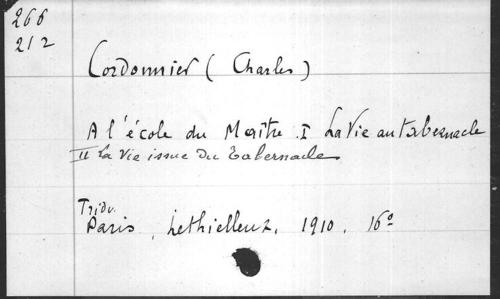 266
212
Cordonnier (Charles)
A l'école du Maître. I La Vie au tabernacle
II La Vie issue du Tabernacle
Tridu.
Paris, Lethielleux, 1910, 16°